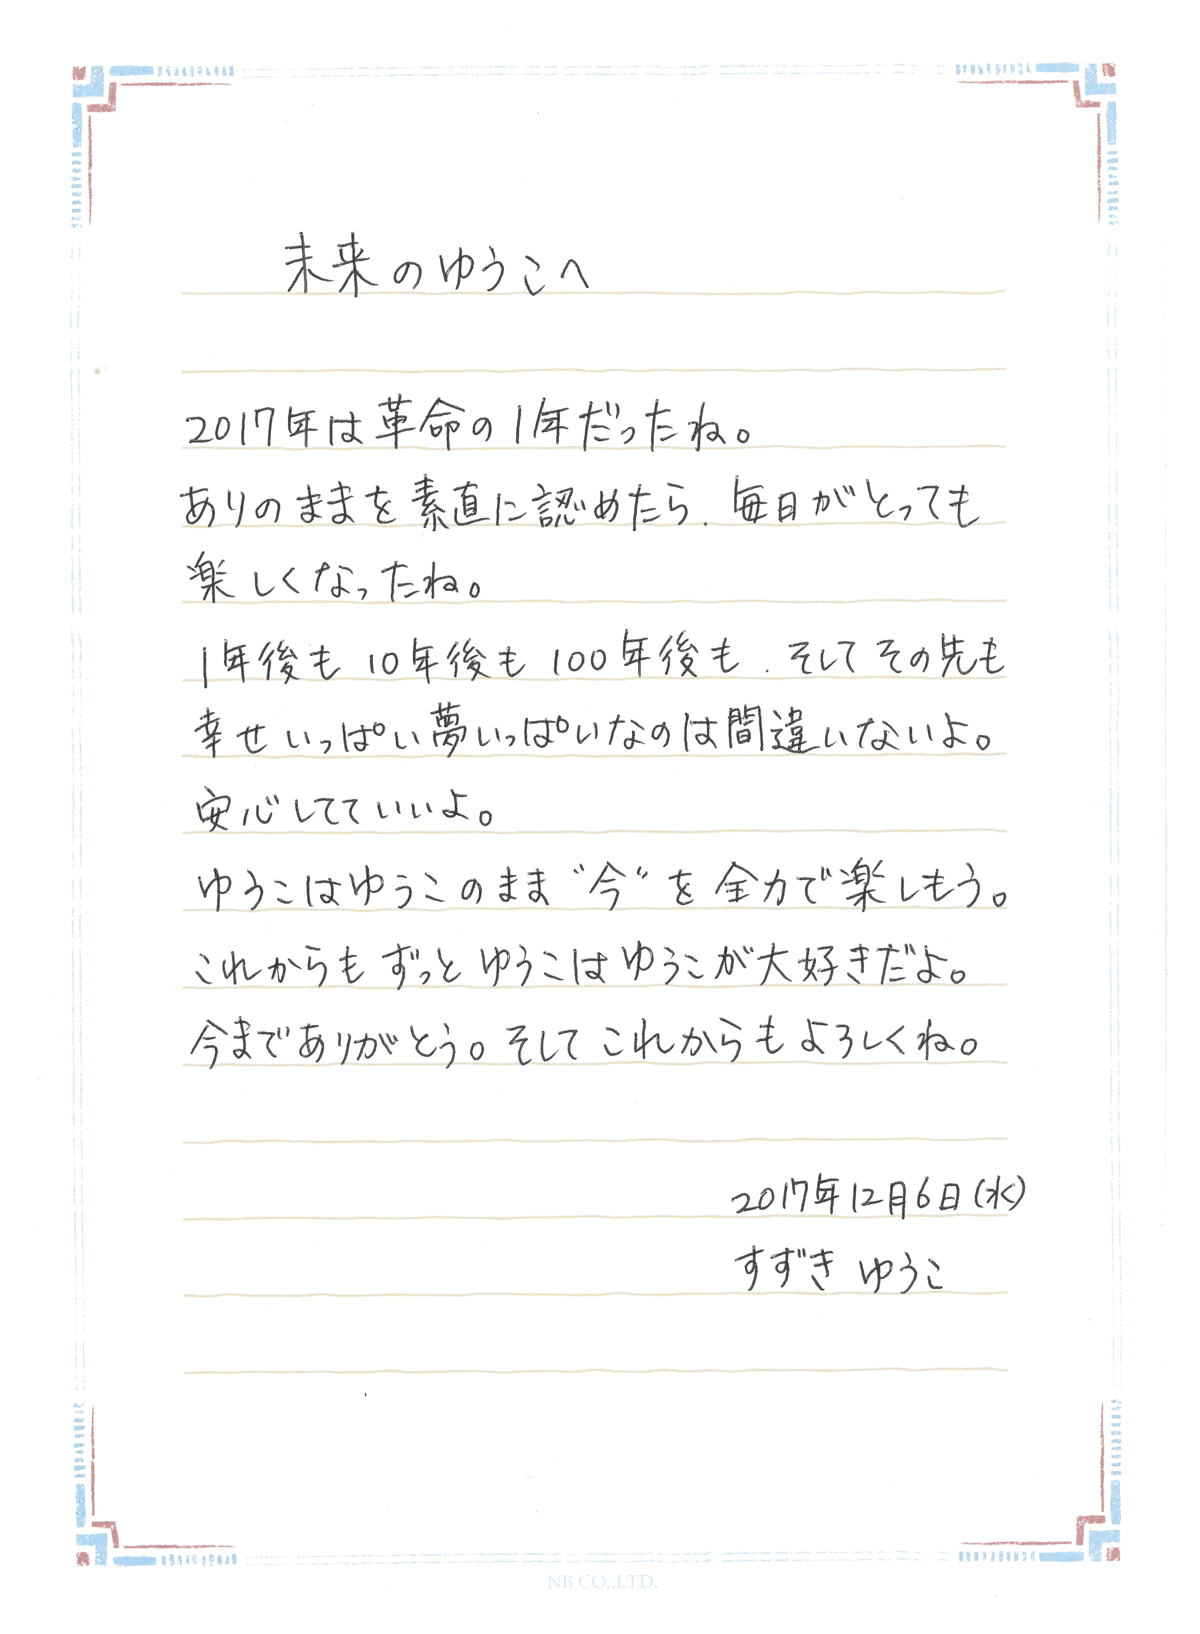 未来のゆうこへ
2017年は革命の1年だったね。
ありのままを素直に認めたら、毎日がとっても
楽しくなったね。
1年後も10年後も100年後も、そしてその先も
幸せいっぱい夢いっぱいなのは間違いないよ。
安心してていいよ。
ゆうこはゆうこのまま"今"を全力で楽しもう。
これからもずっとゆうこはゆうこが大好きだよ。
今までありがとう。そしてこれからもよろしくね。
2017年12月6日(水)
すずき ゆうこ
NB CO.,LTD.